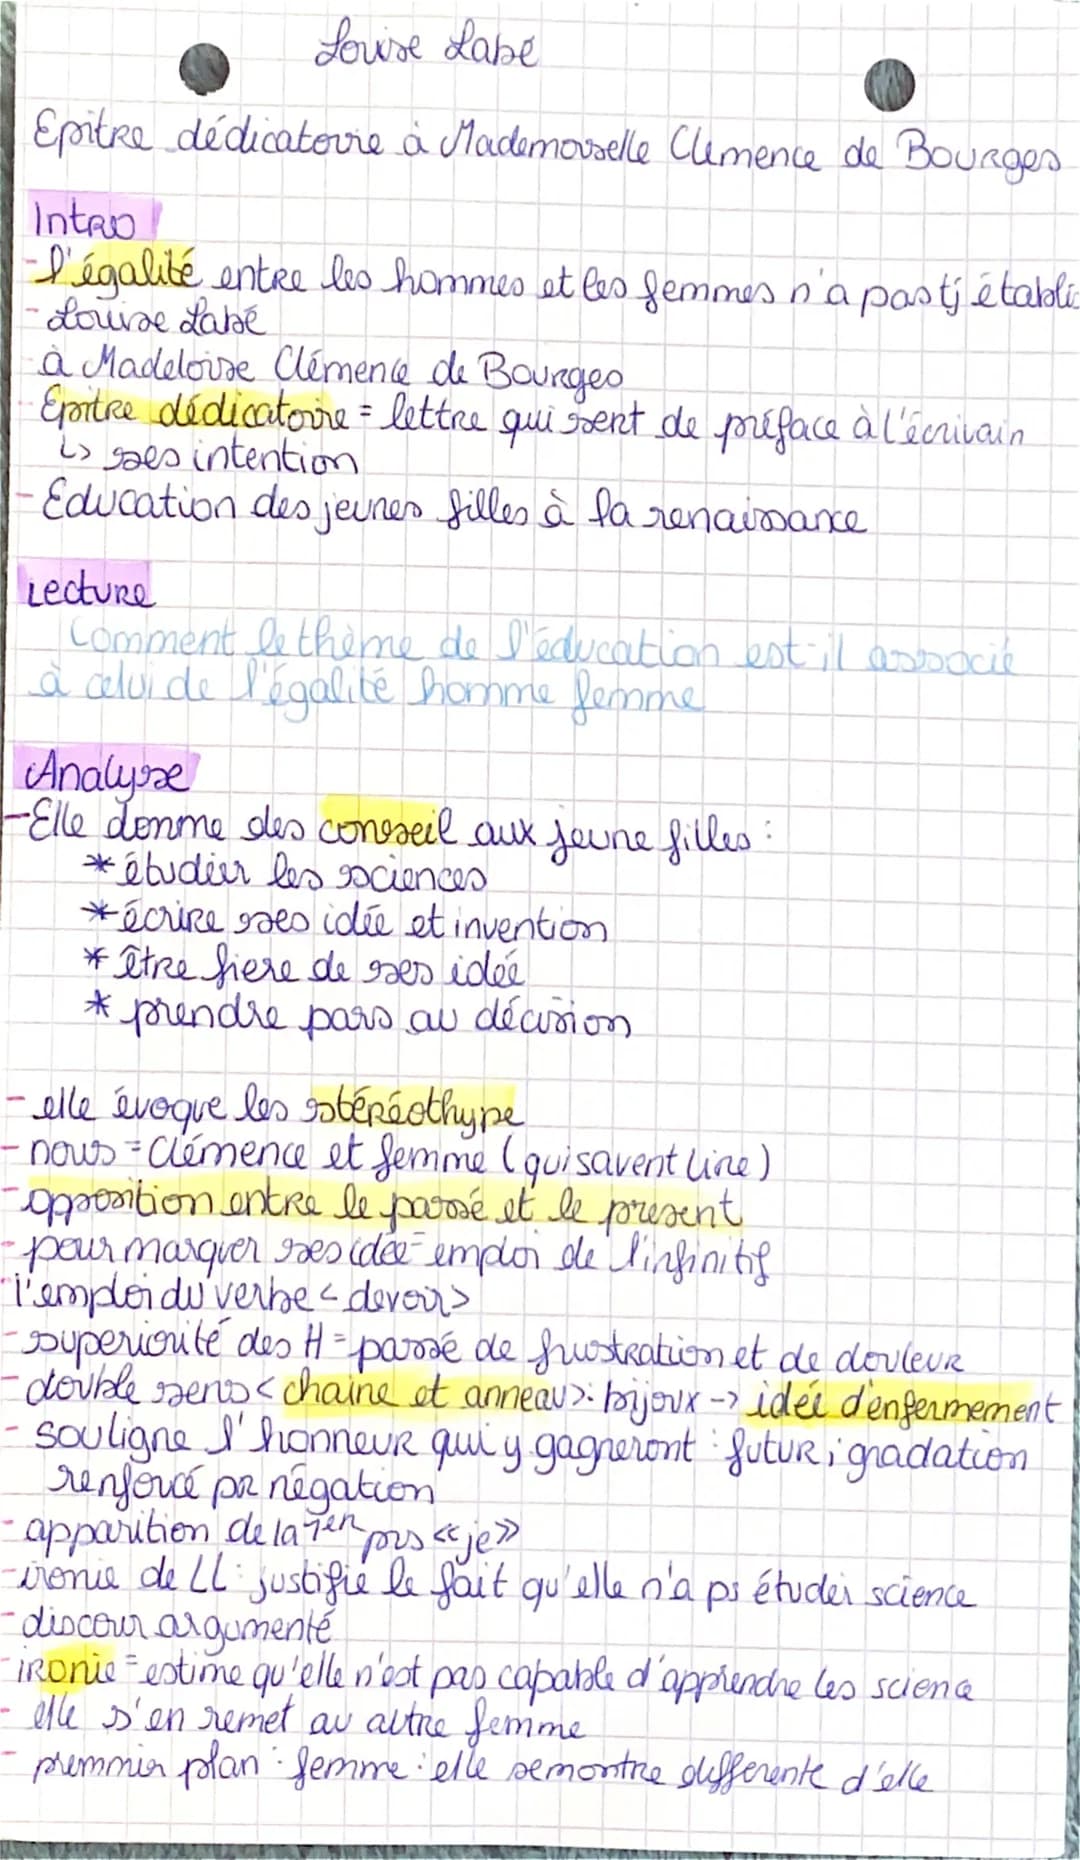 Louise Labé
Epitre dédicatoire à Mademoiselle Clémence de Bourges
Intro
- l'égalité entre les hommes et les femmes n'a pas tj établie
- Louise Labé
à Madeloise Clémence de Bourges
Epitre dédicatoire = lettre qui sert de préface à l'écrivain
↳ ses intention
- Education des jeunes filles à la renaissance
Lecture
Comment le thème de l'éducation est-il associé
à celui de l'égalité homme femme
Analyse
- Elle donme des conseil aux jeune filles :
* étudier les sciences
* écrire ses idée et invention
* être fiere de ses idée
* prendre pars au décision
- elle évoque les stéréothype
- nous = Clémence et femme (qui savent lire)
- opposition entre le passé et le present
- pour marquer ses idée = emploi de l'infinitif
- l'emploi du verbe < devoir >
- superiorité des H = passé de frustration et de douleur
- double sens < chaine et anneau > : bijoux -> idée d'enfermement
- souligne l'honneur qui y gagneront : futur ; gradation
renforcé pr négation
- apparition de la 1er prs «je»
- ironie de LL : justifie le fait qu'elle n'a ps étudier science
- discour argumenté
- ironie = estime qu'elle n'est pas capable d'apprendre les science
- elle s'en remet au autre femme
- premmier plan : femme : elle se montre differente d'elle